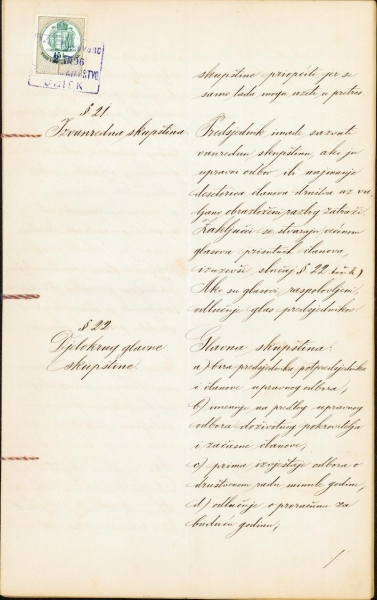 skupštine priopćiti jer se
samo tada mogu uzeti u pretres.
§ 21.
Izvanredna skupština
Predsjednik imade sazvati
vanrednu skupštinu, ako ju
upravni odbor ili najmanje
desetorica članova društva uz va-
ljano obrazložen razlog zatraži.
Zaključci se stvaraju većinom
glasova prisutnih članova,
izuzevši slučaj § 22 toč. h.)
Ako su glasovi raspolovljeni,
odlučuje glas predsjednikov.
§ 22.
Djelokrug glavne
skupštine.
Glavna skupština:
a) bira predsjednika potpredsjednika
i članove upravnog odbora;
b) imenuje na predlog upravnog
odbora doživotnog pokrovitelja
i začasne članove;
c) prima izvještaje odbora o
društvenom radu minule godine;
d) odlučuje o proračunu za
buduću godinu;
OSIEK